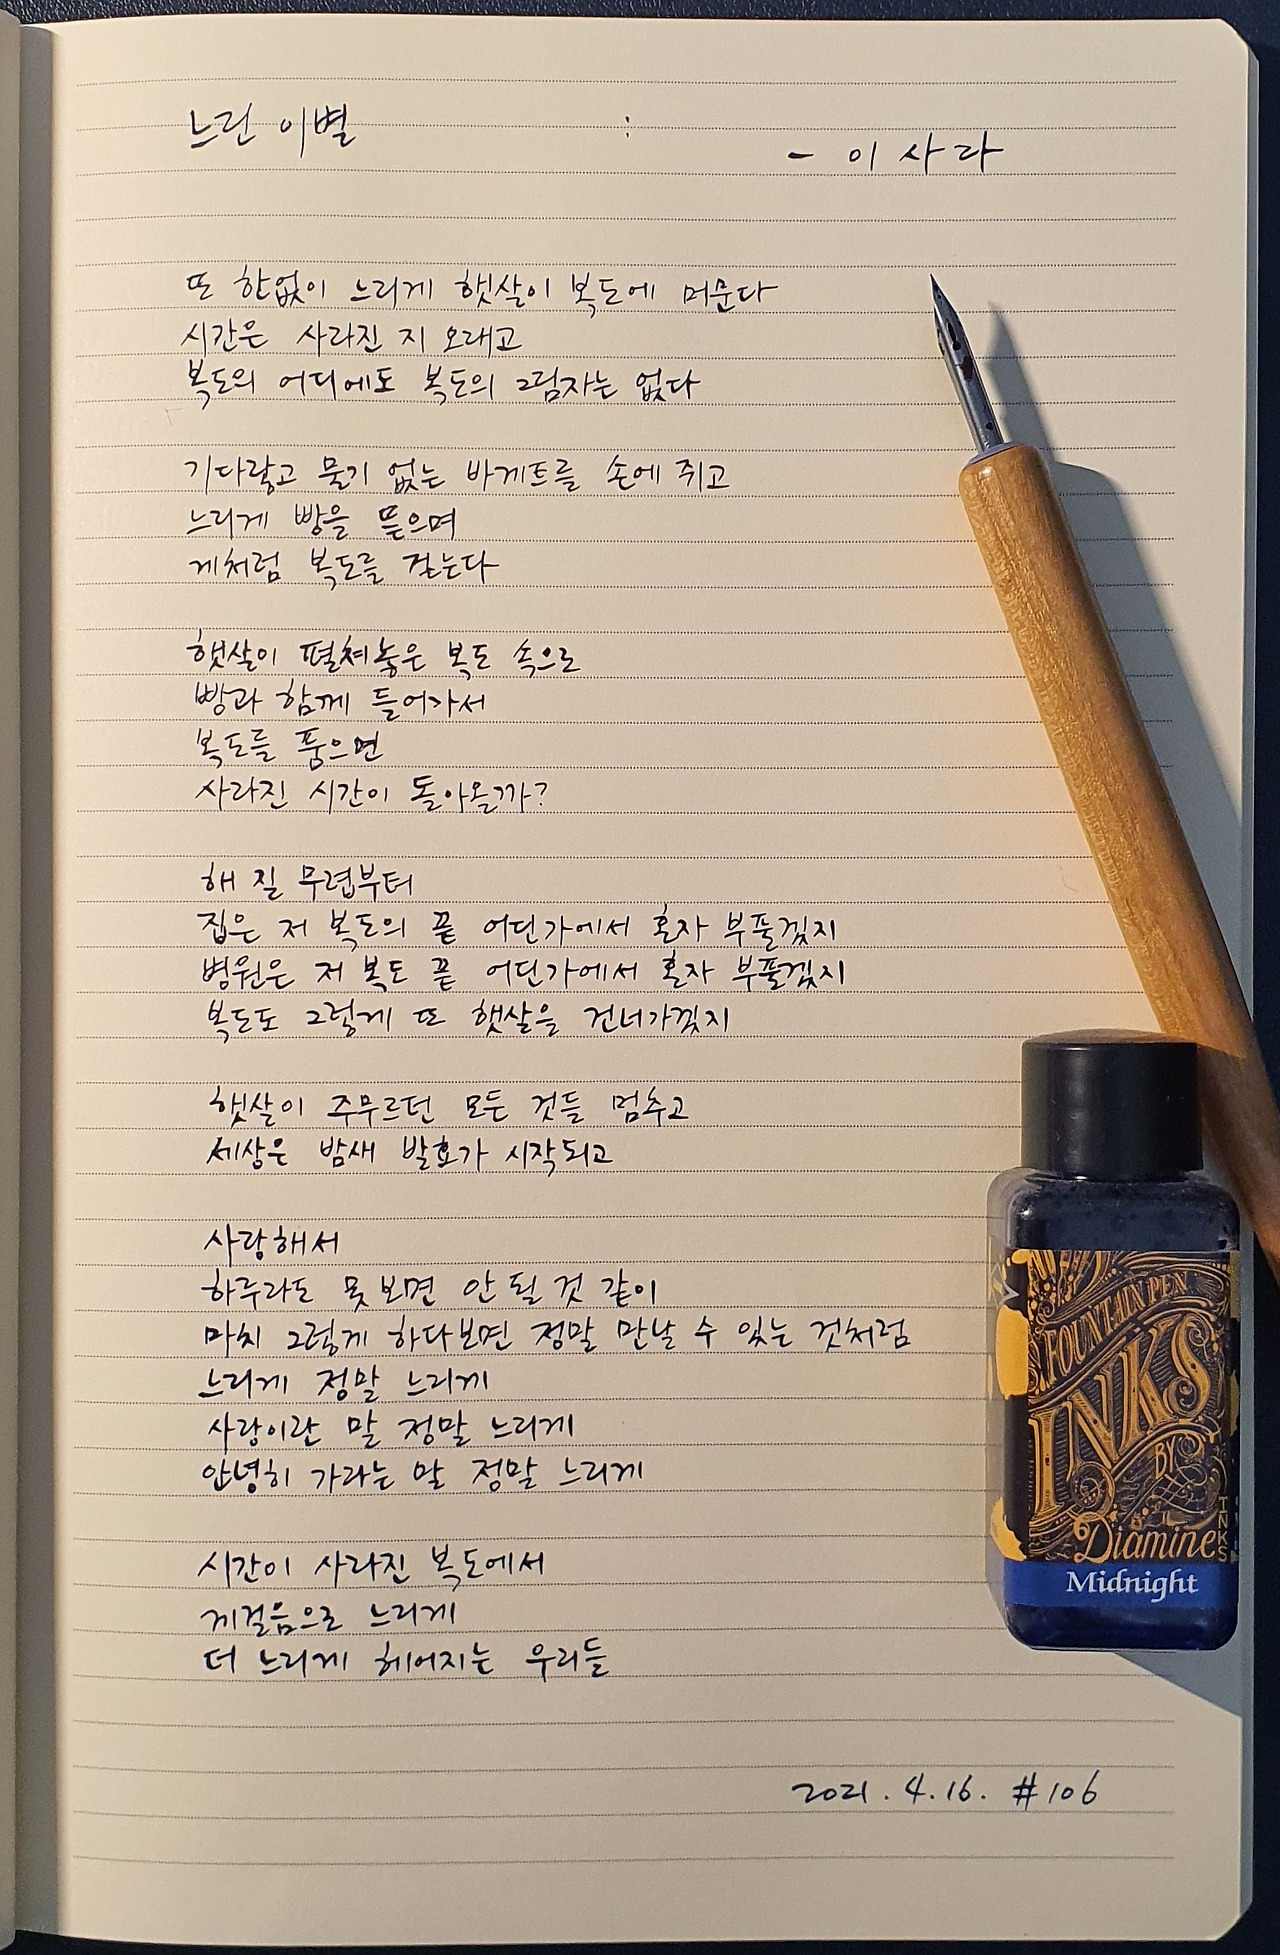 느린 이별
- 이사라
또 한없이 느리게 햇살이 복도에 머문다
시간은 사라진 지 오래고
복도의 어디에도 복도의 그림자는 없다
기다랗고 물기 없는 바게트를 손에 쥐고
느리게 빵을 뜯으며
게처럼 복도를 걷는다
햇살이 펼쳐놓은 복도 속으로
빵과 함께 들어가서
복도를 품으면
사라진 시간이 돌아올까?
해 질 무렵부터
집은 저 복도의 끝 어딘가에서 혼자 부풀겠지
병원은 저 복도 끝 어딘가에서 혼자 부풀겠지
복도도 그렇게 또 햇살을 건너가겠지
햇살이 주무르던 모든 것들 멈추고
세상은 밤새 발효가 시작되고
사랑해서
하루라도 못 보면 안 될 것 같이
마치 그렇게 하다보면 정말 만날 수 있는 것처럼
느리게 정말 느리게
사랑이란 말 정말 느리게
안녕히 가라는 말 정말 느리게
시간이 사라진 복도에서
게걸음으로 느리게
더 느리게 헤어지는 우리들
2021. 4. 16. #106
FOUNTAIN PEN
INKS
BY
Diamine
INKS
Midnight